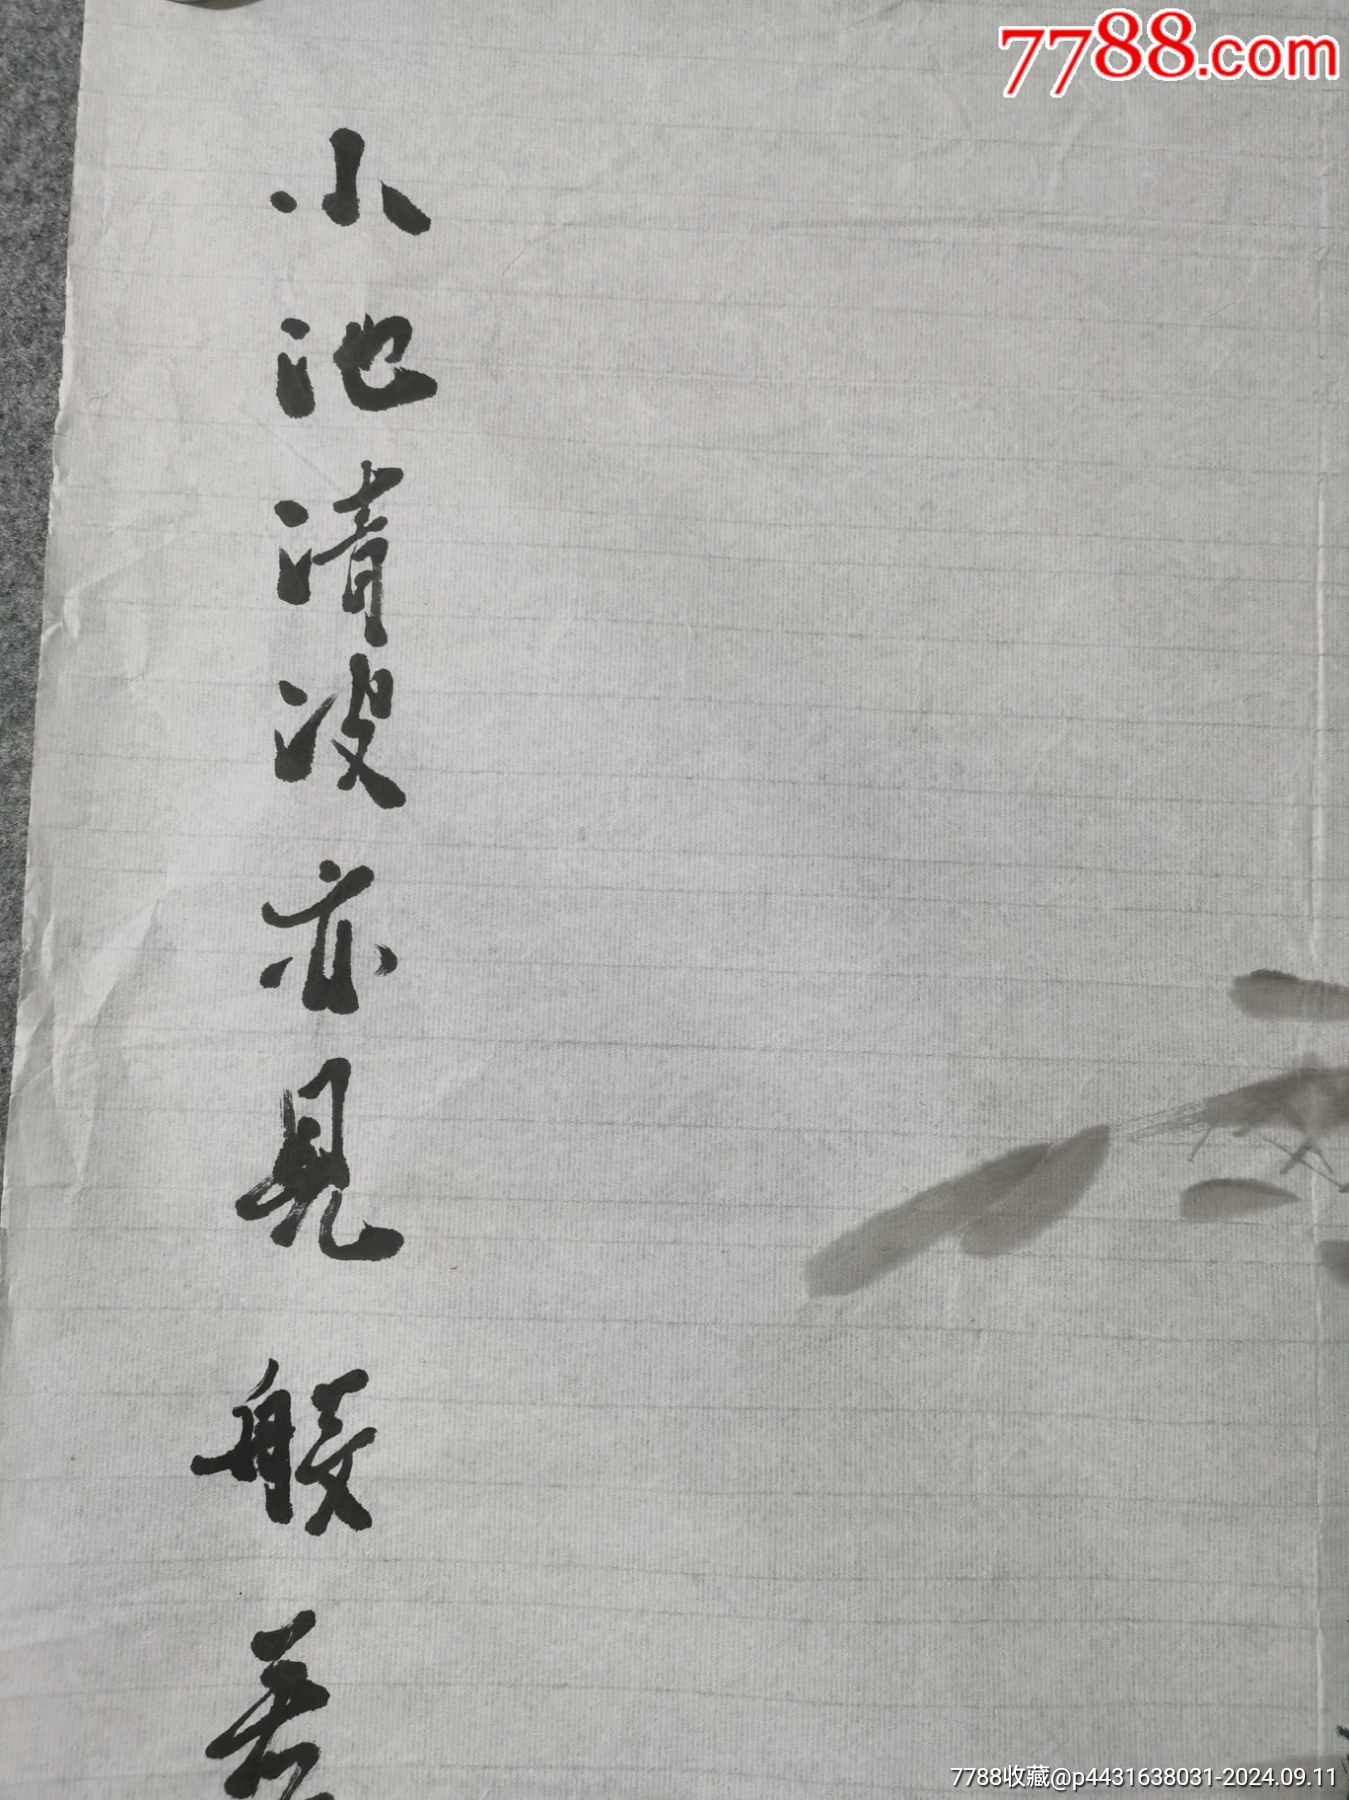 7788.com
小池清没亦見般若
7788收藏@p4431638031-2024.09.11